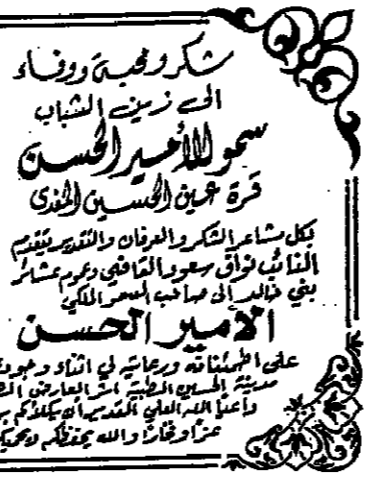 شكر ومحبة ووفاء
الى زين الشباب
سمو الأمير الحسن
قرة عين الحسين المفدى
بكل مشاعر الشكر والعرفان والتقدير يتقدم
النائب نواف سعود القاضي وعموم عشائر
بني خالد الى صاحب السمو الملكي
الامير الحسن
على اطمئنانه ورعايته لي اثناء وجودي
مدينة الحسين الطبية اثر العارض
داعياً الله العلي القدير أن يكلأكم
عزاً وفخاراً والله يحفظكم